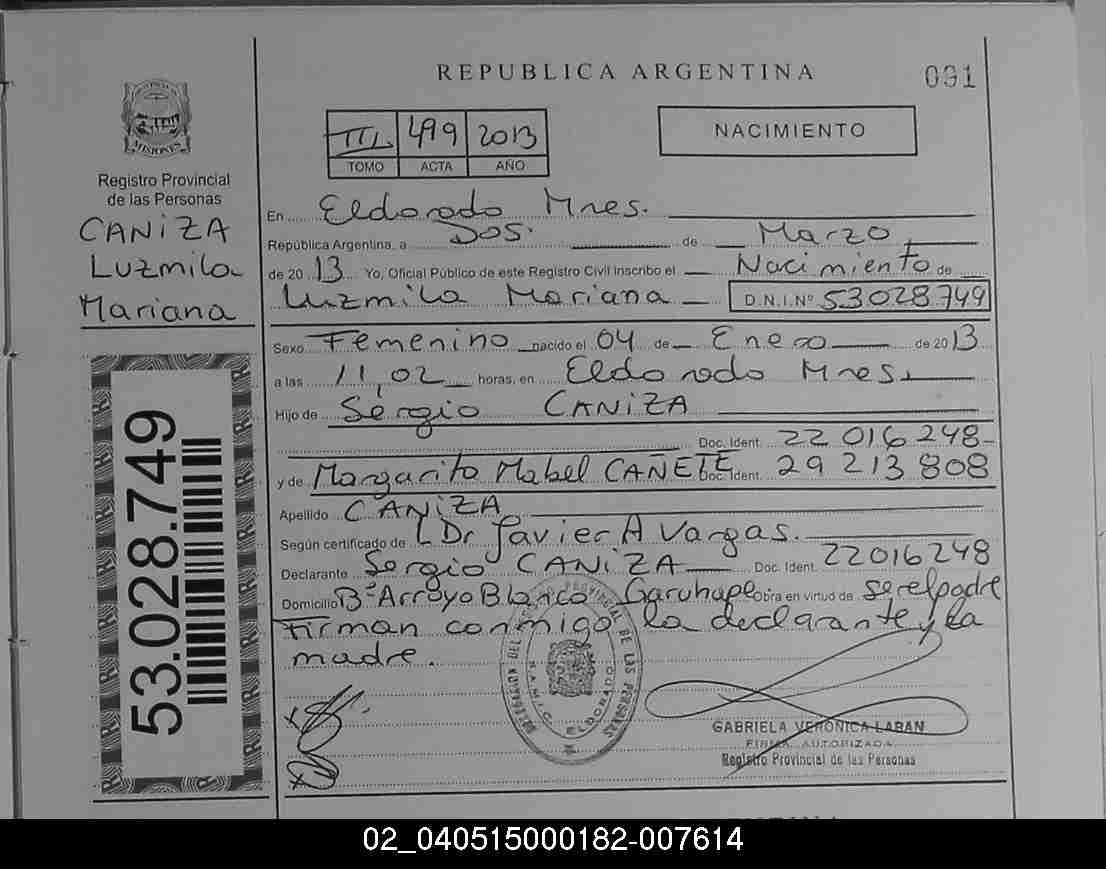 REPUBLICA ARGENTINA
031
III 499 2013
TOMO ACTA AÑO
NACIMIENTO
MISIONES
Registro Provincial
de las Personas
CANiZA
Luzmila
Mariana
53.028.749
En Eldorado Mnes.
República Argentina, a Dos. de Marzo
de 2013 Yo, Oficial Público de este Registro Civil inscribo el Nacimiento de
Luzmila Mariana D.N.I.Nº 53028749
Sexo Femenino nacido el 04 de Enero de 2013
a las 11,02 horas, en Eldorado Mnes.
Hijo de Sergio CANiZA
Doc. Ident. 22 016 248
y de Margarita Mabel CAÑETE Doc. Ident. 29 213 808
Apellido CANiZA
Según certificado de Dr Javier A Vargas.
Declarante Sergio CANiZA Doc. Ident. 22016248
Domicilio Bº Arroyo Blanco Garuhape Obra en virtud de ser el padre
Firman conmigo la declarante y la
madre.
DELEGACION DEL REG. PROVINCIAL DE LAS PERSONAS
ELDORADO
GABRIELA VERONICA LABAN
FIRMA AUTORIZADA
Registro Provincial de las Personas
02_040515000182-007614